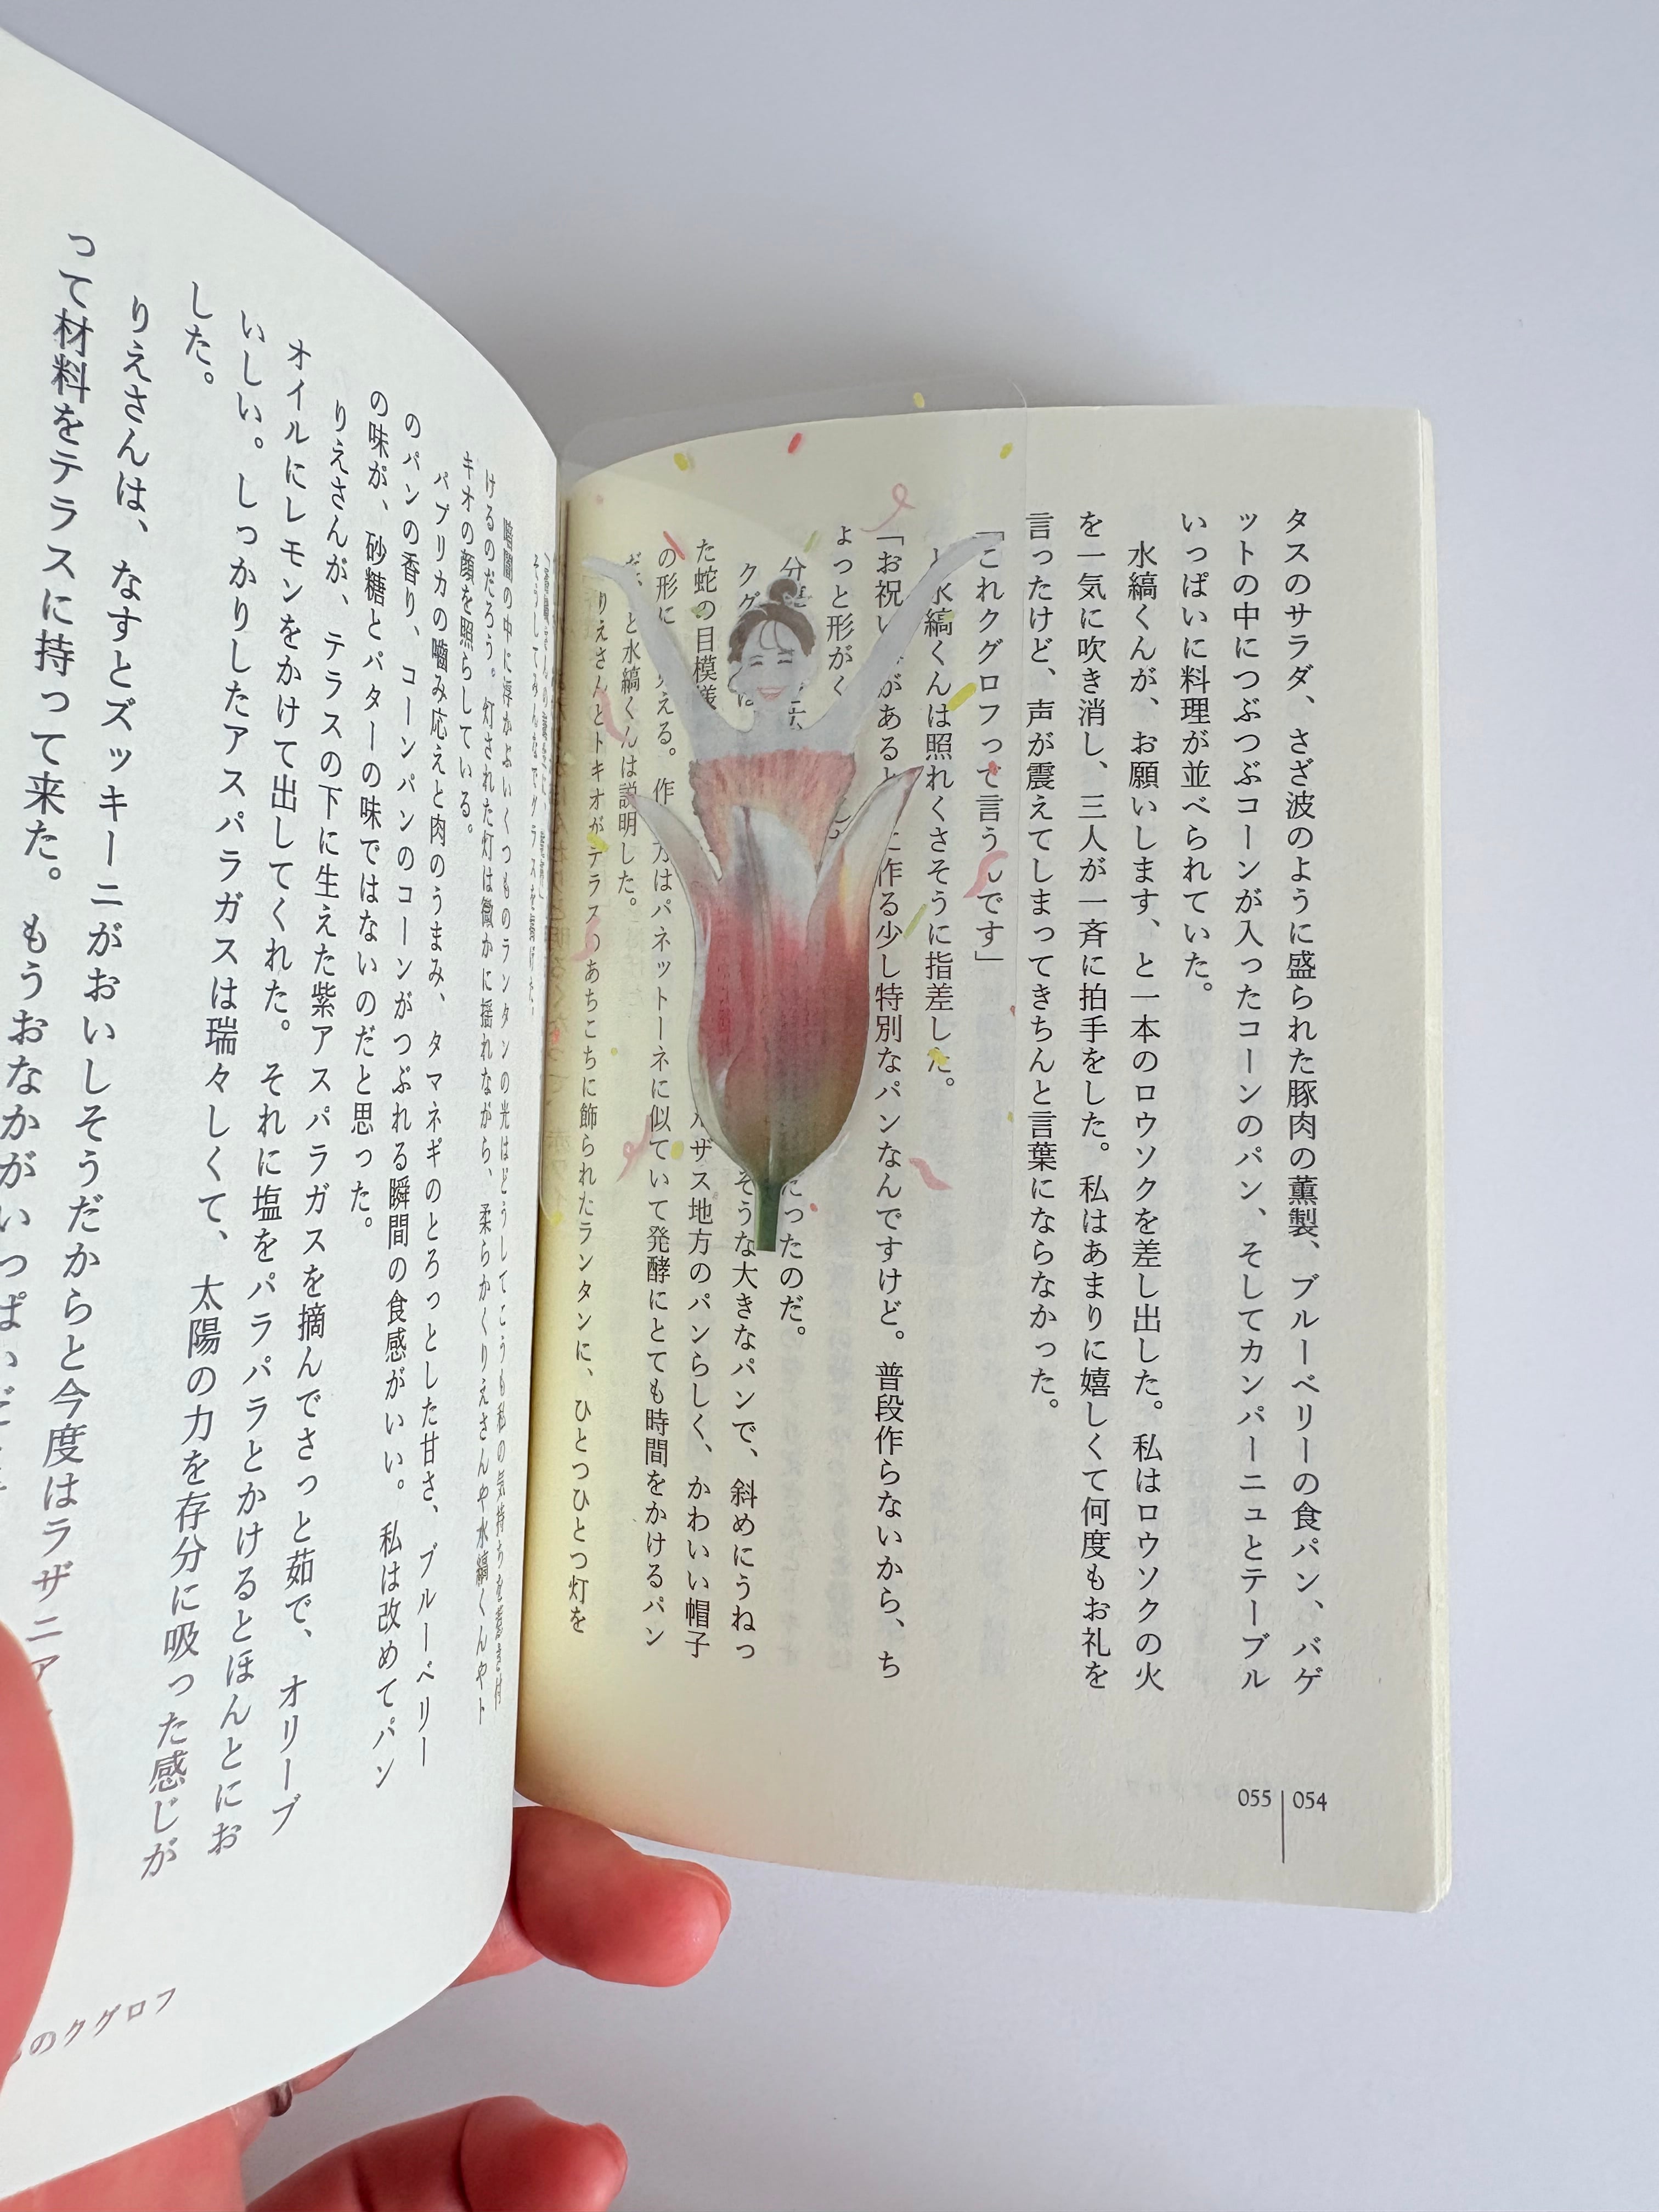 タスのサラダ、さざ波のように盛られた豚肉の薫製、ブルーベリーの食パン、バゲ
ットの中につぶつぶコーンが入ったコーンのパン、そしてカンパーニュとテーブル
いっぱいに料理が並べられていた。
水縞くんが、お願いします、と一本のロウソクを差し出した。私はロウソクの火
を一気に吹き消し、三人が一斉に拍手をした。私はあまりに嬉しくて何度もお礼を
言ったけど、声が震えてしまってきちんと言葉にならなかった。
「これクグロフって言うんです」
と水縞くんは照れくさそうに指差した。
「お祝い があると に作る少し特別なパンなんですけど。普段作らないから、ち
ょっと形がく
ったのだ。
クグ そうな大きなパンで、斜めにうねっ
た蛇の目模様 ルザス地方のパンらしく、かわいい帽子
の形に える。作 方はパネットーネに似ていて発酵にとても時間をかけるパン
だ、と水縞くんは説明した。
りえさんとトキオがテラスのあちこちに飾られたランタンに、ひとつひとつ灯を
暗闇の中に浮かぶいくつものランタンの光はどうしてこうも私の気持ちを惹き付
けるのだろう。灯された灯は微かに揺れながら、柔らかくりえさんや水縞くんやト
キオの顔を照らしている。
パプリカの噛み応えと肉のうまみ、タマネギのとろっとした甘さ、ブルーベリー
のパンの香り、コーンパンのコーンがつぶれる瞬間の食感がいい。私は改めてパン
の味が、砂糖とバターの味ではないのだと思った。
りえさんが、テラスの下に生えた紫アスパラガスを摘んでさっと茹で、オリーブ
オイルにレモンをかけて出してくれた。それに塩をパラパラとかけるとほんとにお
いしい。しっかりしたアスパラガスは瑞々しくて、太陽の力を存分に吸った感じが
した。
りえさんは、なすとズッキーニがおいしそうだからと今度はラザニア
って材料をテラスに持って来た。もうおなかがいっぱい
のクグロフ
055 054